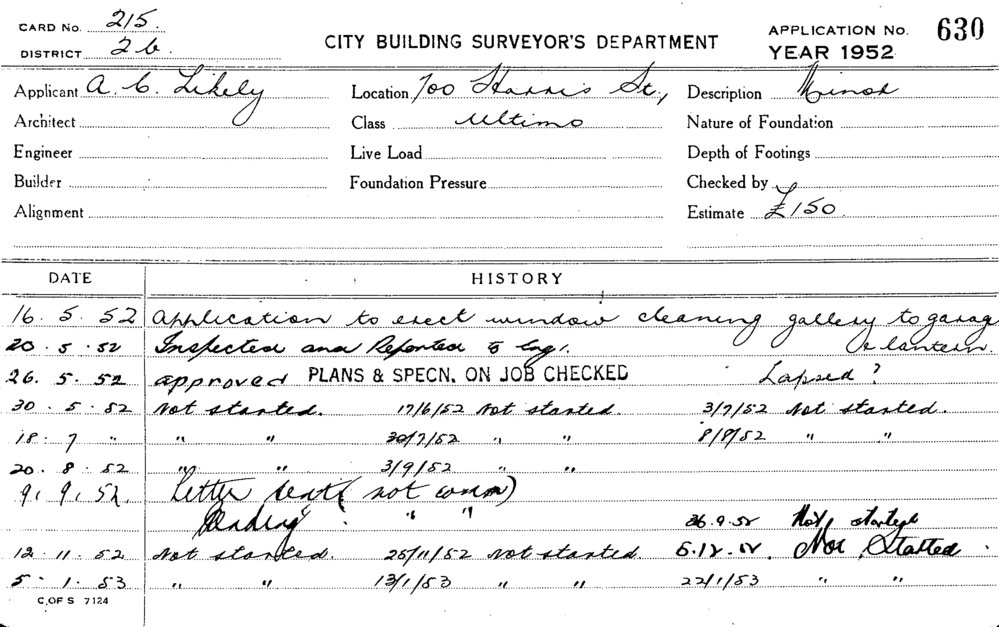 CARD No. 215.
DISTRICT 2b.
CITY BUILDING SURVEYOR'S DEPARTMENT
APPLICATION No. 630
YEAR 1952
Applicant A. C. Likely Location 700 Harris St., Description Minor
Architect Class Ultimo Nature of Foundation
Engineer Live Load Depth of Footings
Builder Foundation Pressure Checked by
Alignment Estimate £150.
DATE HISTORY
16. 5. 52 Application to erect window cleaning gallery to garage
& lantern.
20. 5. 52 Inspected and Reported to
26. 5. 52 approved PLANS & SPECN. ON JOB CHECKED Lapsed?
30. 5. 52 Not started. 17/6/52 Not started. 3/7/52 Not started.
18. 7 " " " 30/7/52 " " 8/8/52 " "
20. 8. 52 " " 3/9/52 " "
9. 9. 52. Letter sent (not comm)
Pending " " 26.9.52 Not started
12. 11. 52 Not started. 25/11/52 Not started. 5.12.52. Not Started.
5. 1. 53 " " 13/1/53 " " 22/1/53 " "
C. OF S 7124